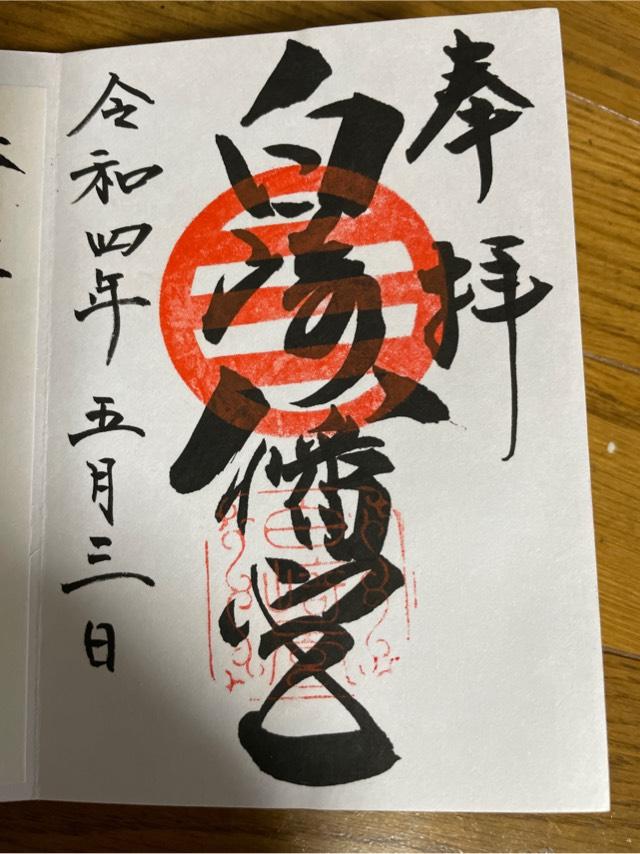 奉拝
白崎八幡宮
令和四年 五月三日